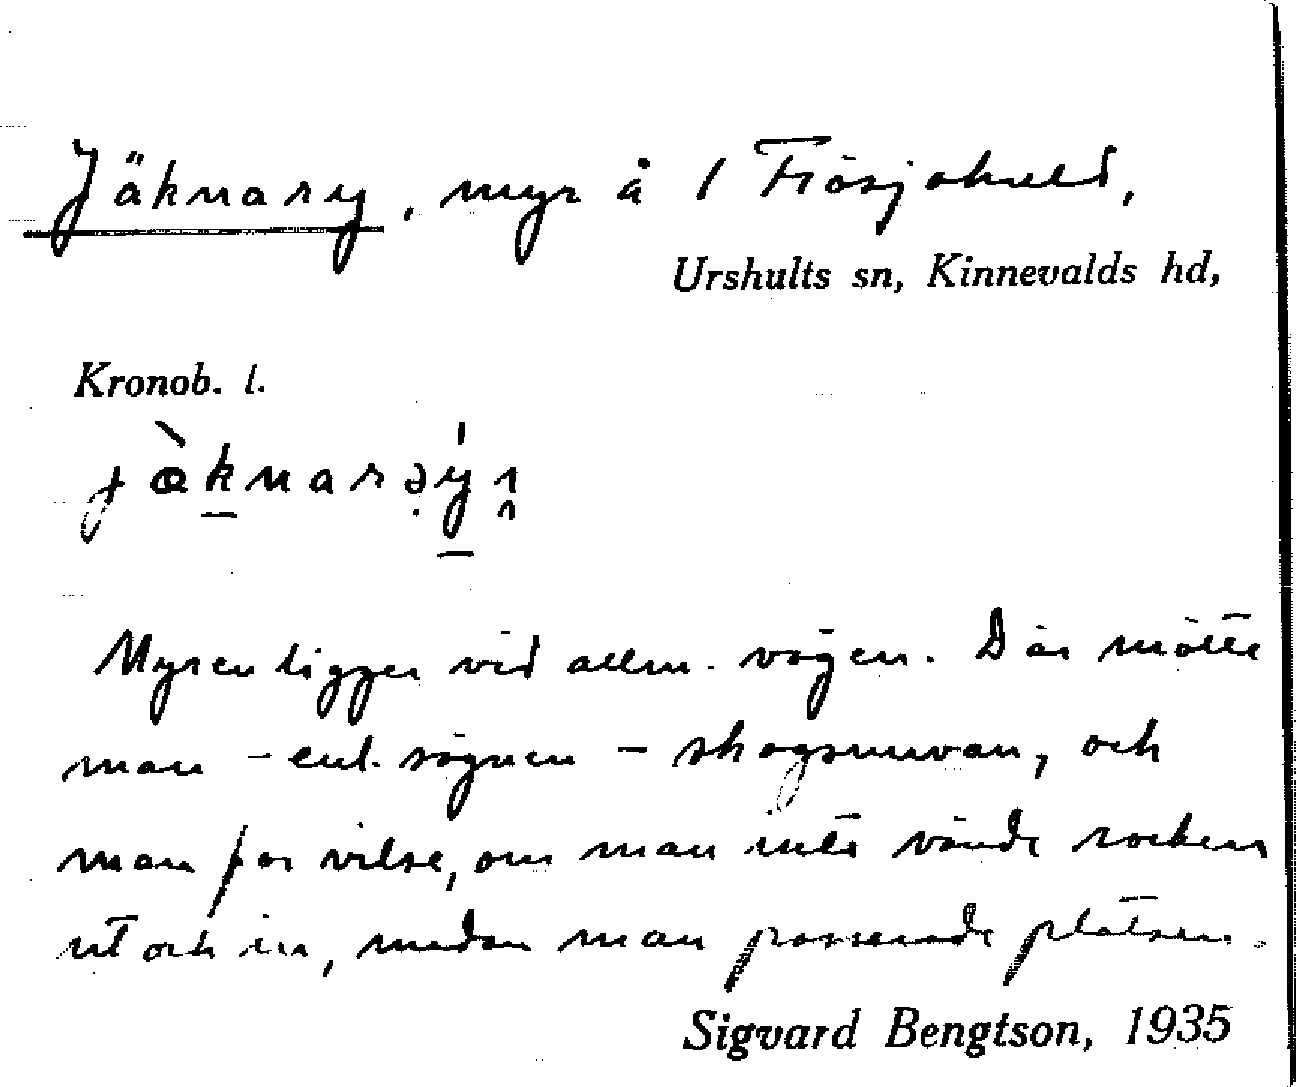 Jäknary, myr å 1 Frösjohult,
Urshults sn, Kinnevalds hd,
Kronob. l.
Myren ligger vid allm. vägen. Där mötte
man – enl. sägnen – skogsnuvan, och
man for vilse, om man inte vände rocken
ut och in, medan man passerade platsen.
Sigvard Bengtson, 1935